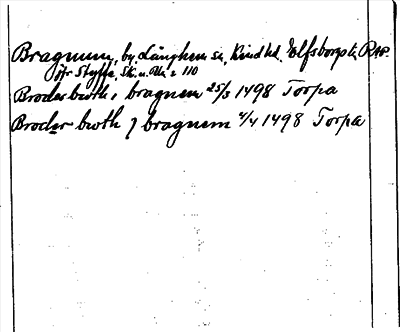 Bragnum, by, Länghem sn, Kind hd. Elfsborgs l. RAP.
jfr Styffe, Sk. u. Un. 2 110
Broder biroth i bragnem 25/3 1498 Torpa
Broder biroth j bragnem 4/4 1498 Torpa